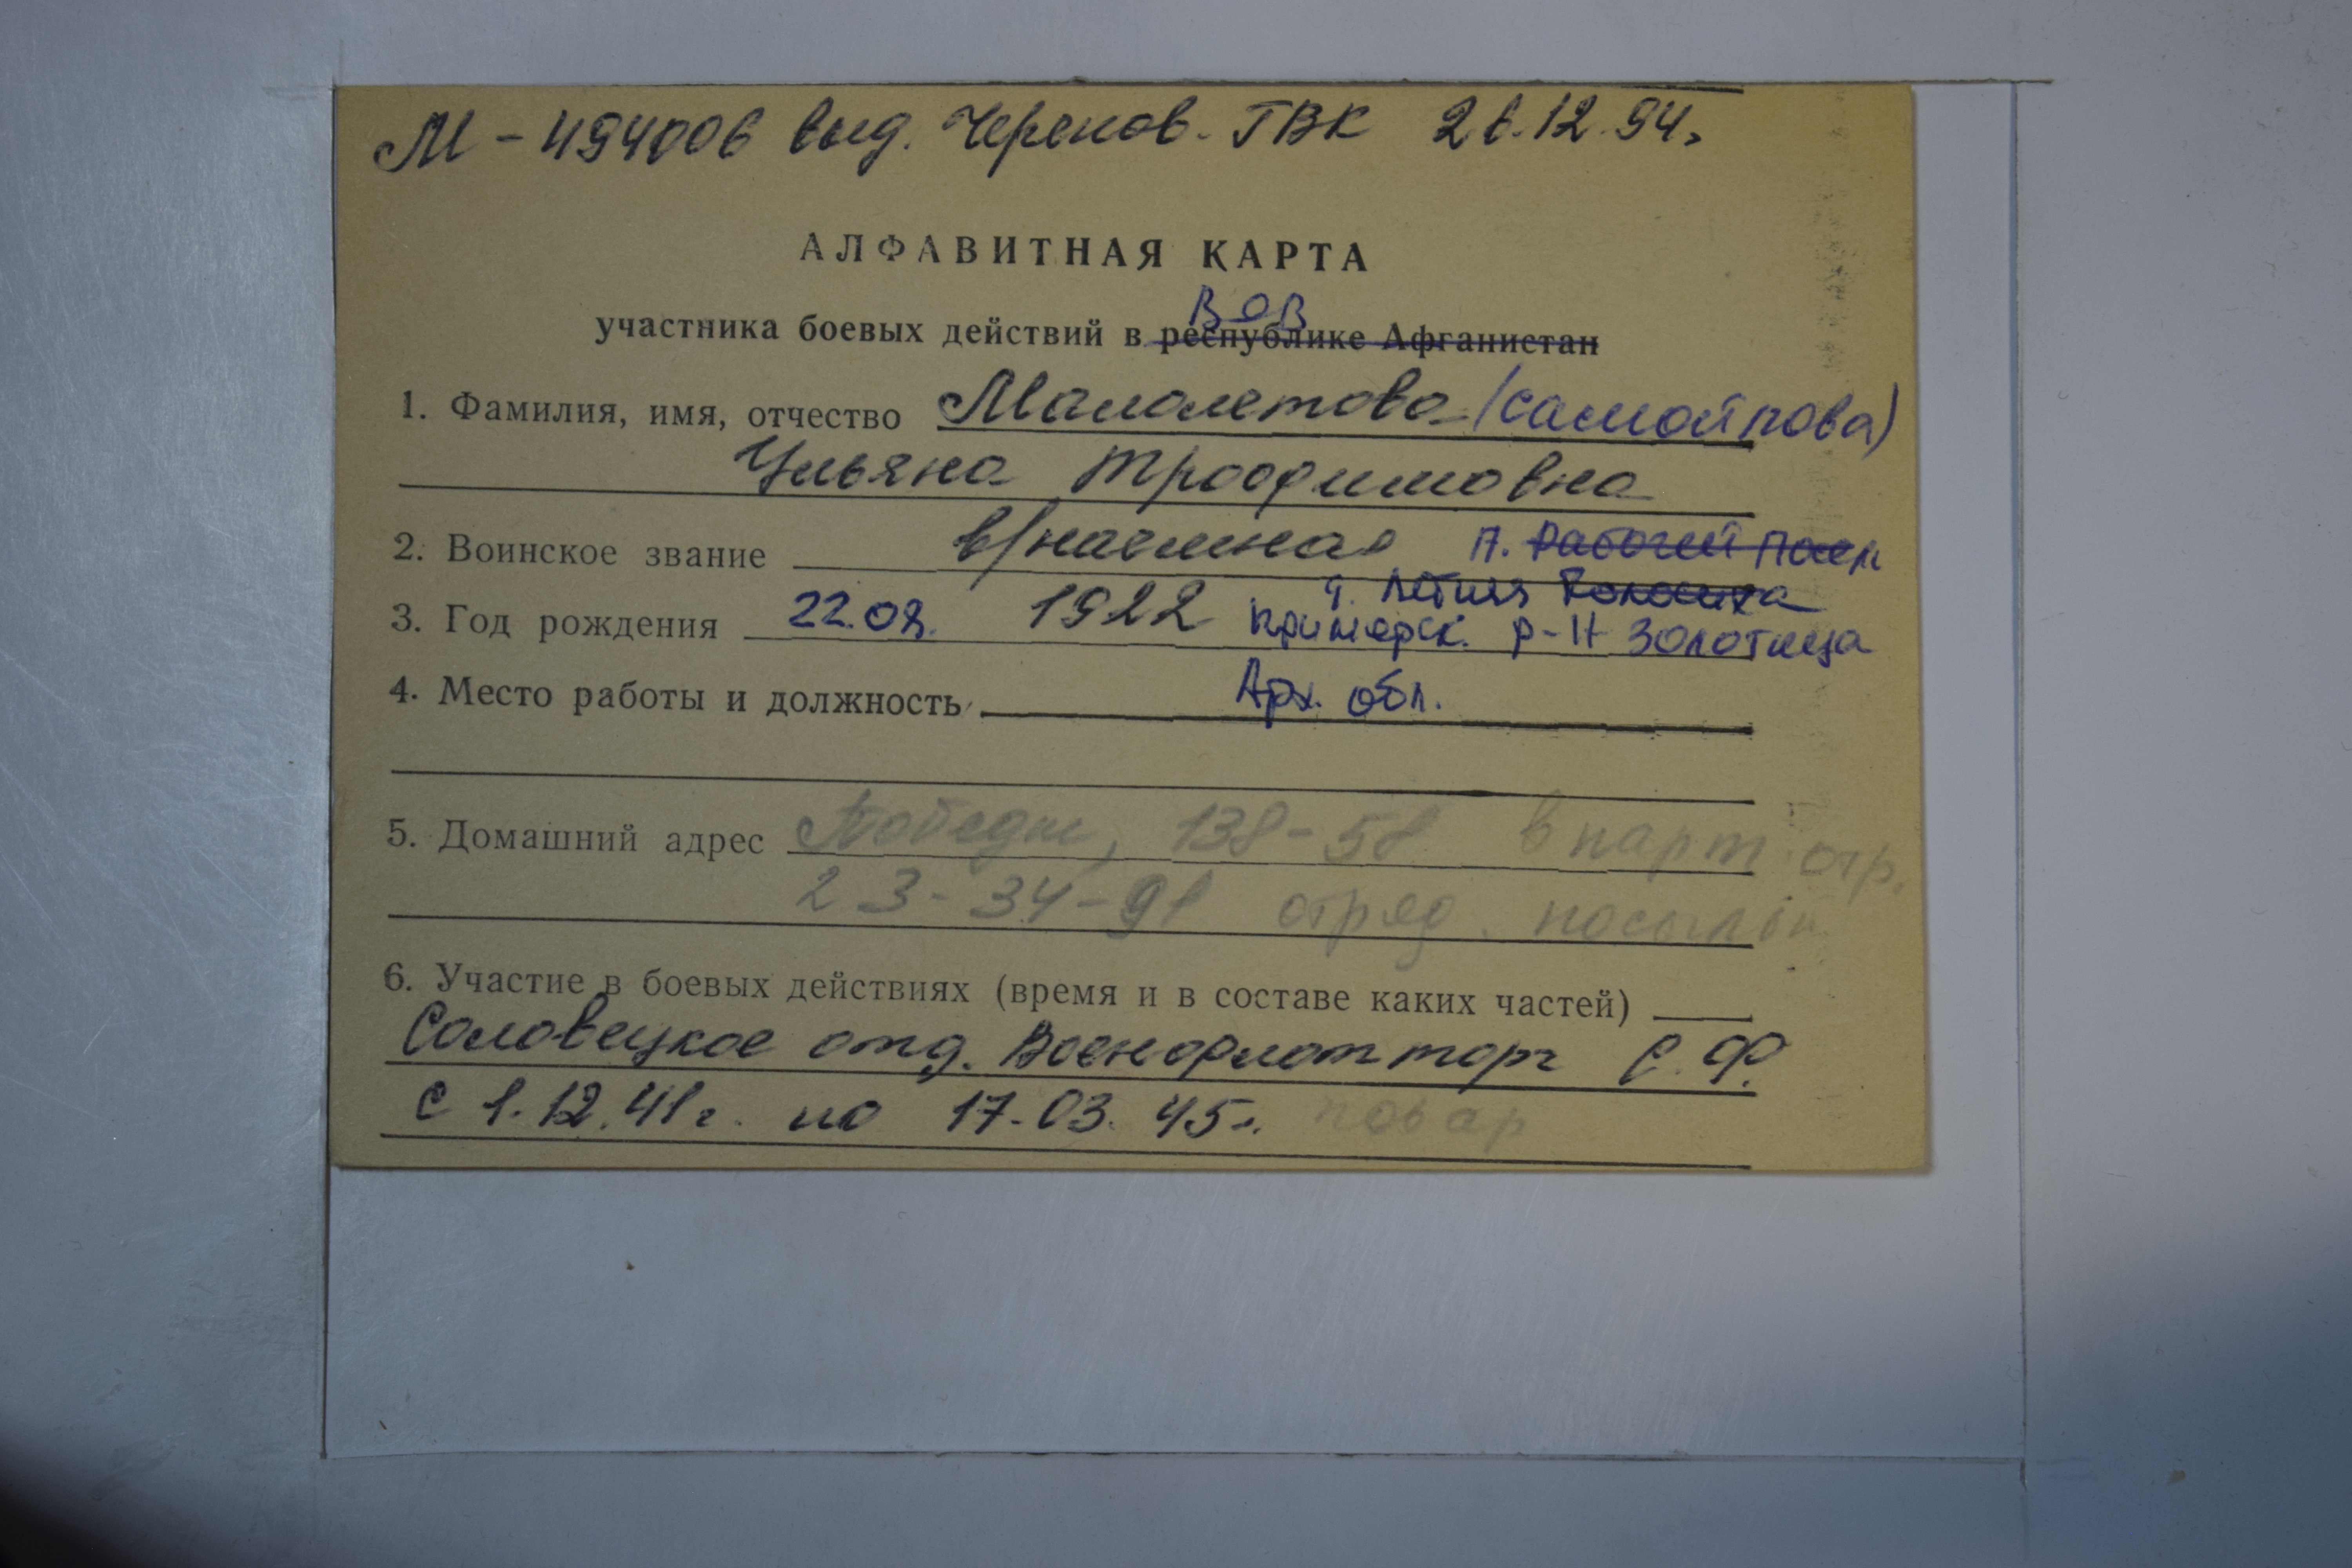 М - 494006 выд. Черепов. ГВК 26.12.94г.
АЛФАВИТНАЯ КАРТА
ВОВ
участника боевых действий в республике Афганистан
1. Фамилия, имя, отчество Малолетова (Самойлова)
Ульяна Трофимовна
2. Воинское звание в/наемная п. Рабочий
3. Год рождения 22.08. 1922 Летняя
Приморск. р-н Золотица
4. Место работы и должность Арх. обл.
5. Домашний адрес Победы, 138-58 в парт. отр.
23-34-91 отряд
6. Участие в боевых действиях (время и в составе каких частей)
Соловецкое отд. Военфлотторг С.Ф.
с 1.12.41г. по 17.03.45г. повар